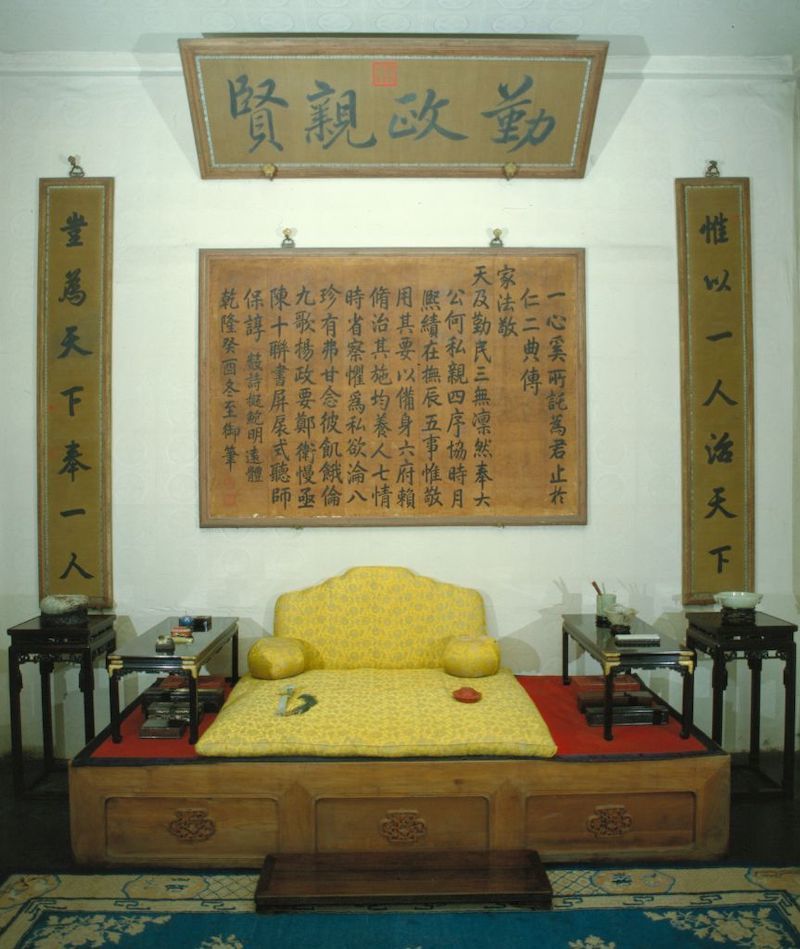 勤政親賢
惟以一人治天下
一心奚所託為君止於
仁二典傳
家法敬
天及勤民三無凛然奉大
公何私親四序協時月
熈績在撫辰五事惟敬
用其要以備身六府賴
脩治其施均養人七情
時省察懼爲私欲淪八
珍有弗甘念彼飢餓倫
九歌揚政要鄭衛慢亟
陳十聯書屏扆式聽師
保諄 數詩擬鮑明遠體
乾隆癸酉冬至御筆
豈為天下奉一人